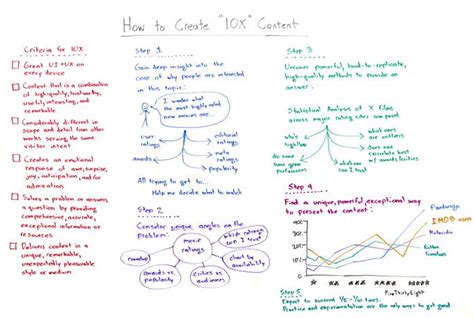 How to Create "10X" Content
Criteria for 10X
Great UI + UX on
every device
Content that is a combination
of high-quality, trustworthy,
useful, interesting, and
remarkable
Considerably different in
scope and detail from other
works serving the same
visitor intent
Creates an emotional
response of awe, surprise,
joy, anticipation, and/or
admiration
Solves a problem or answers
a question by providing
comprehensive, accurate,
exceptional information or
resources
Delivers content in a
unique, remarkable,
unexpectedly pleasurable
style or medium
Step 1
Gain deep insight into the
core of why people are interested
in this topic:
I wonder what
the most highly rated
new movies are...
user
ratings
awards
editorial
ratings
meta
ratings
popularity
All trying to get to...
Help me decide what to watch
Step 2
Consider unique angles on the
problem:
movie
ratings
roundup
which ratings
can I trust
chart by
availability
awards vs.
popularity
critics vs.
audiences
Step 3
Uncover powerful, hard-to-replicate,
high-quality methods to provide an
answer:
Statistical Analysis of X films
across major rating sites compared
who's
high/low
what ones
are outliers
do some
have genre
preferences
what
correlations exist
w/ awards/critics
Step 4
Find a unique, powerful, exceptional way
to present the content:
Fandango
IMDB
Metacritic
Rotten
Tomatoes
FiveThirtyEight
Step 5
Expect to succeed 1/5 - 1/10 times.
Practice and experimentation are the only ways to get good.